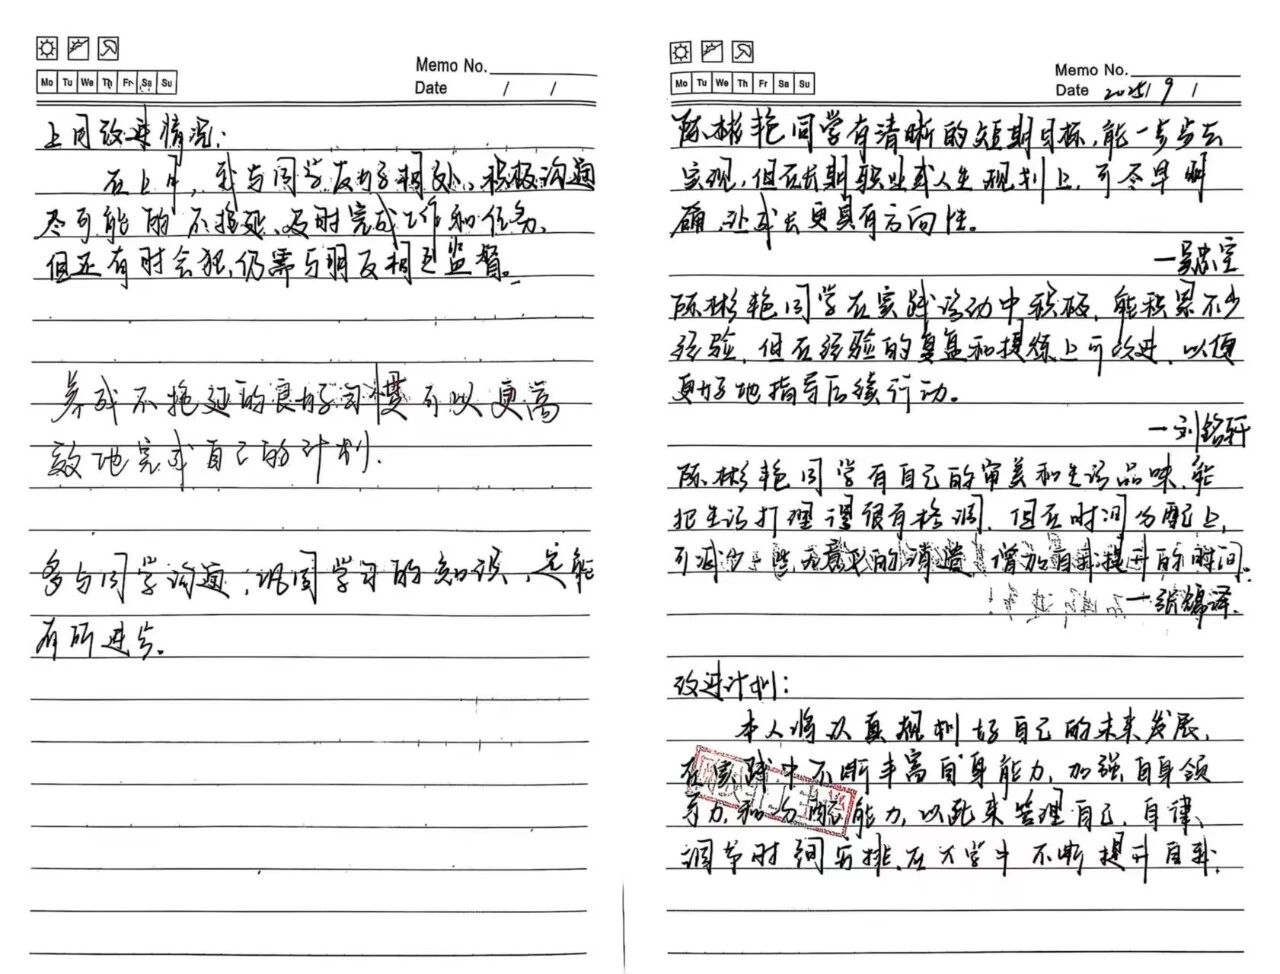 Memo No.
Mo Tu We Th Fr Sa Su
Date / /
上月改进情况:
在上月,我与同学友好相处,积极沟通
尽可能的不拖延、及时完成工作和任务,
但还有时会犯,仍需与朋友相互监督。
养成不拖延的良好习惯可以更高
效地完成自己的计划.
多与同学沟通,巩固学习的知识,定能
有所进步。
Memo No.
Mo Tu We Th Fr Sa Su
Date 2025/ 9 /
陈彬艳同学有清晰的短期目标,能一步步去
实现,但在长期职业或人生规划上,可尽早明
确,让成长更具有方向性。
陈彬艳同学在实践活动中积极,能积累不少
经验,但在经验的复盘和提炼上可改进,以便
更好地指导后续行动。
—刘铭轩
陈彬艳同学有自己的审美和生活品味,能
把生活打理得很有格调,但在时间分配上,
可减少一些无意义的消遣,增加自我提升的时间。
改进计划:
本人将认真规划好自己的未来发展,
在实践中不断丰富自身能力,加强自身领
导力和分配能力,以此来管理自己,自律、
调节时间安排,在大学中不断提升自我.